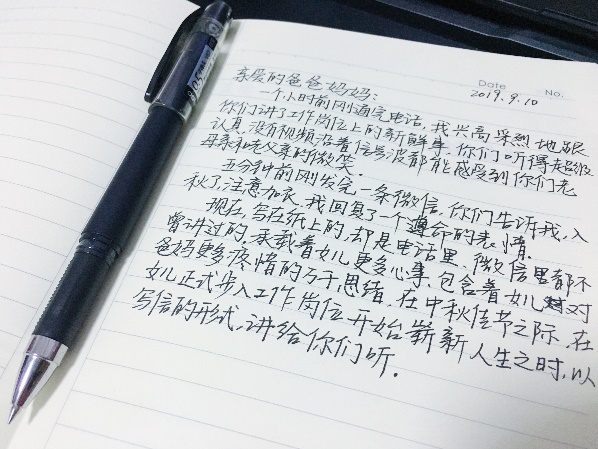 0.5
Date
No.
2019.9.10
亲爱的爸爸妈妈：
一个小时前刚通完电话，我兴高采烈地跟
你们讲了工作岗位上的新鲜事，你们听得超级
认真，没有视频沿着信号波都能感受到你们老
母亲和老父亲的微笑。
五分钟前刚发完一条微信，你们告诉我，入
秋了，注意加衣，我回复了一个遵命的表情。
现在，写在纸上的，却是电话里、微信里都不
曾讲过的，承载着女儿更多心事，包含着女儿对
爸妈更多疼惜的万千思绪，在中秋佳节之际，在
女儿正式步入工作岗位开始崭新人生之时，以
写信的形式，讲给你们听。